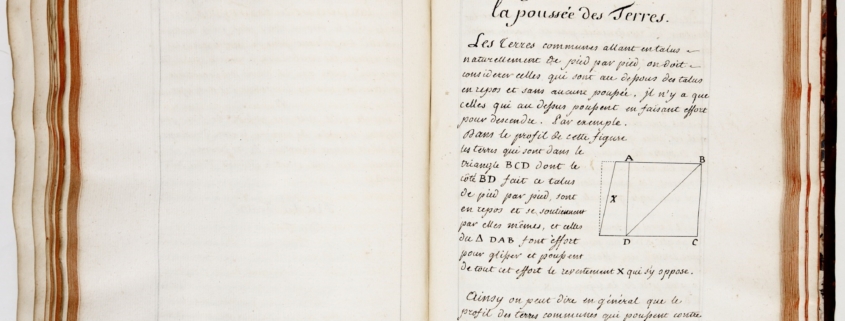 la poussée des Terres.
Les Terres communes allant en talus
naturellement de pied par pied, on doit
considerer celles qui sont au dessous des talus
en repos et sans aucune poussée, jl n'y a que
celles qui au dessus poussent en faisant effort
pour descendre. Par exemple.
Dans le profil de cette figure
les terres qui sont dans le
triangle BCD dont le
côté BD fait ce talus
de pied par pied, sont
en repos et se soutiennent
par elles mêmes, et celles
du Δ DAB font effort
pour glisser et poussent
de tout cet effort le revêtement X qui s'y oppose.
A B
X
D C
Ainsy on peut dire en général que le
profil des terres communes qui poussent contre